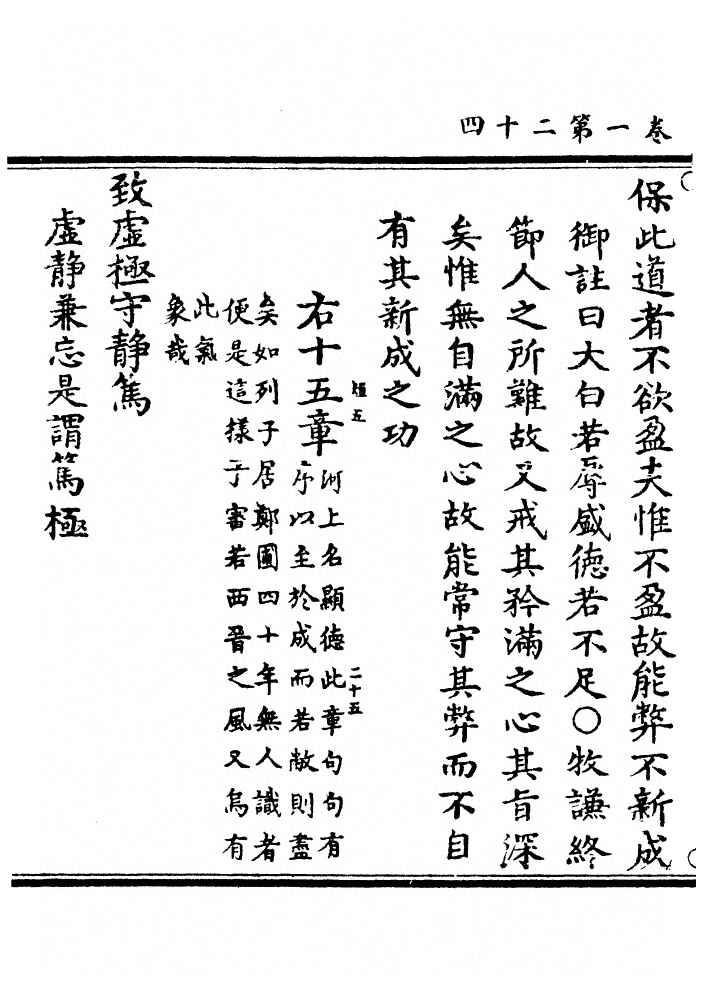 卷一第二十四
保此道者不欲盈夫惟不盈故能弊不新成
御註曰大白若辱盛德若不足○牧謙終
節人之所難故又戒其矜滿之心其旨深
矣惟無自滿之心故能常守其弊而不自
有其新成之功
右十五章
短五
二十五
河上名顯德此章句句有
序以至於成而若敝則盡
矣如列子居鄭圃四十年無人識者
便是這樣子審若西晉之風又烏有
此氣
象哉
致虛極守靜篤
虛靜兼忘是謂篤極